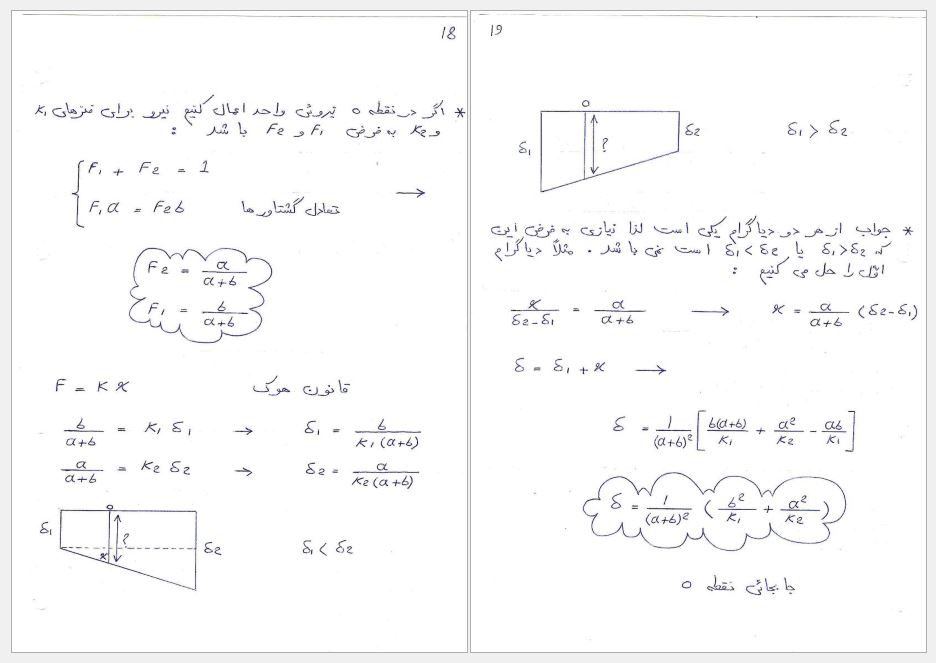 18
* اگر در نقطه o نیروئی واحد اعمال کنیم نیرو برای فنرهای K1
و K2 به فرض F1 و F2 باشد :
F1 + F2 = 1
F1 a = F2 b تعادل گشتاورها →
F2 = a/(a+b)
F1 = b/(a+b)
F = K x قانون هوک
b/(a+b) = K1 δ1 → δ1 = b/(K1(a+b))
a/(a+b) = K2 δ2 → δ2 = a/(K2(a+b))
o
δ1 x ? δ2 δ1 < δ2
19
o
δ1 ? δ2 δ1 > δ2
* جواب از هر دو دیاگرام یکی است لذا نیازی به فرض این
که δ1 > δ2 یا δ1 < δ2 است نمی باشد . مثلاً دیاگرام
اوّل را حل می کنیم :
x/(δ2-δ1) = a/(a+b) → x = a/(a+b) (δ2-δ1)
δ = δ1 + x →
δ = 1/(a+b)² [ b(a+b)/K1 + a²/K2 - ab/K1 ]
δ = 1/(a+b)² ( b²/K1 + a²/K2 )
جابجائی نقطه o